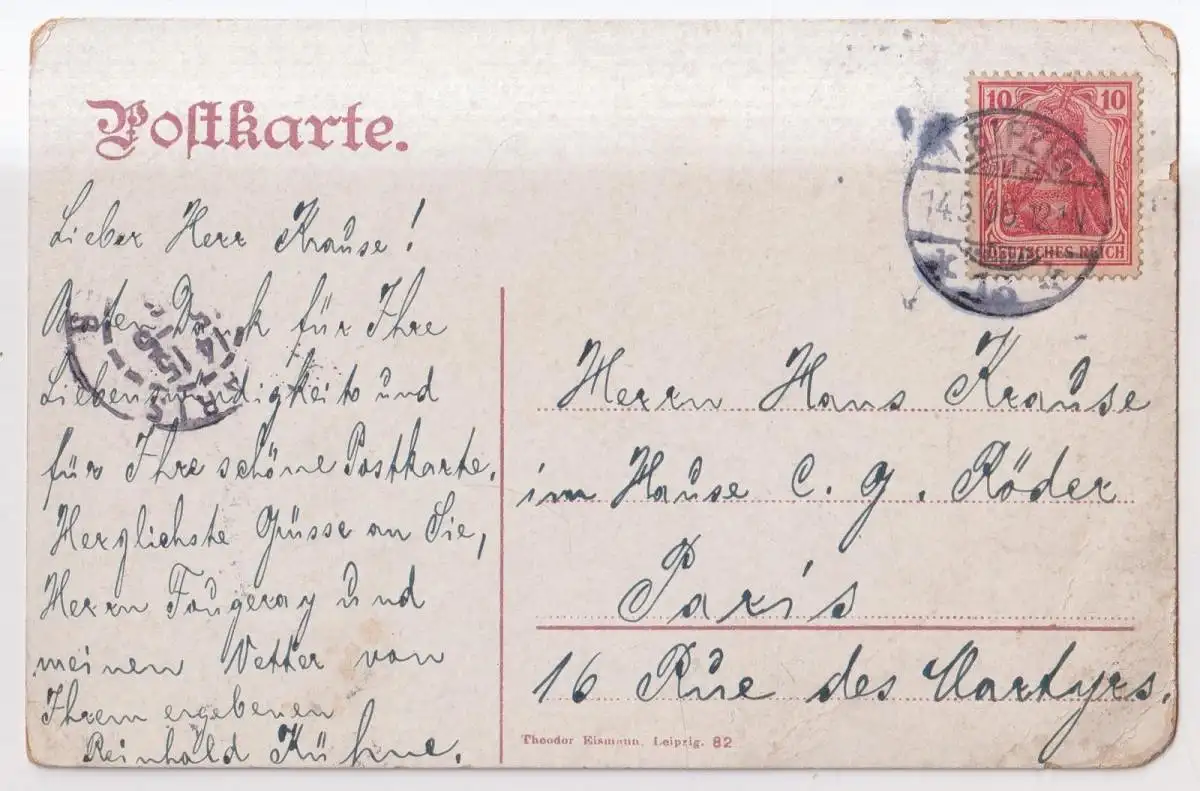 Postkarte.
Lieber Herr Krause!
Besten Dank für Ihre
Liebenswürdigkeit und
für Ihre schöne Postkarte.
Herzlichste Grüsse an Sie,
Herrn Fougeray und
meinen Vetter von
Ihrem ergebenen
Reinhold Kühne.
10 10
DEUTSCHES REICH
LEIPZIG
14.5. 12-1N
13
PARIS
14
15
5
Herrn Hans Krause
im Hause C. G. Röder
Paris
16 Rue des Martyrs.
Theodor Eismann, Leipzig. 82